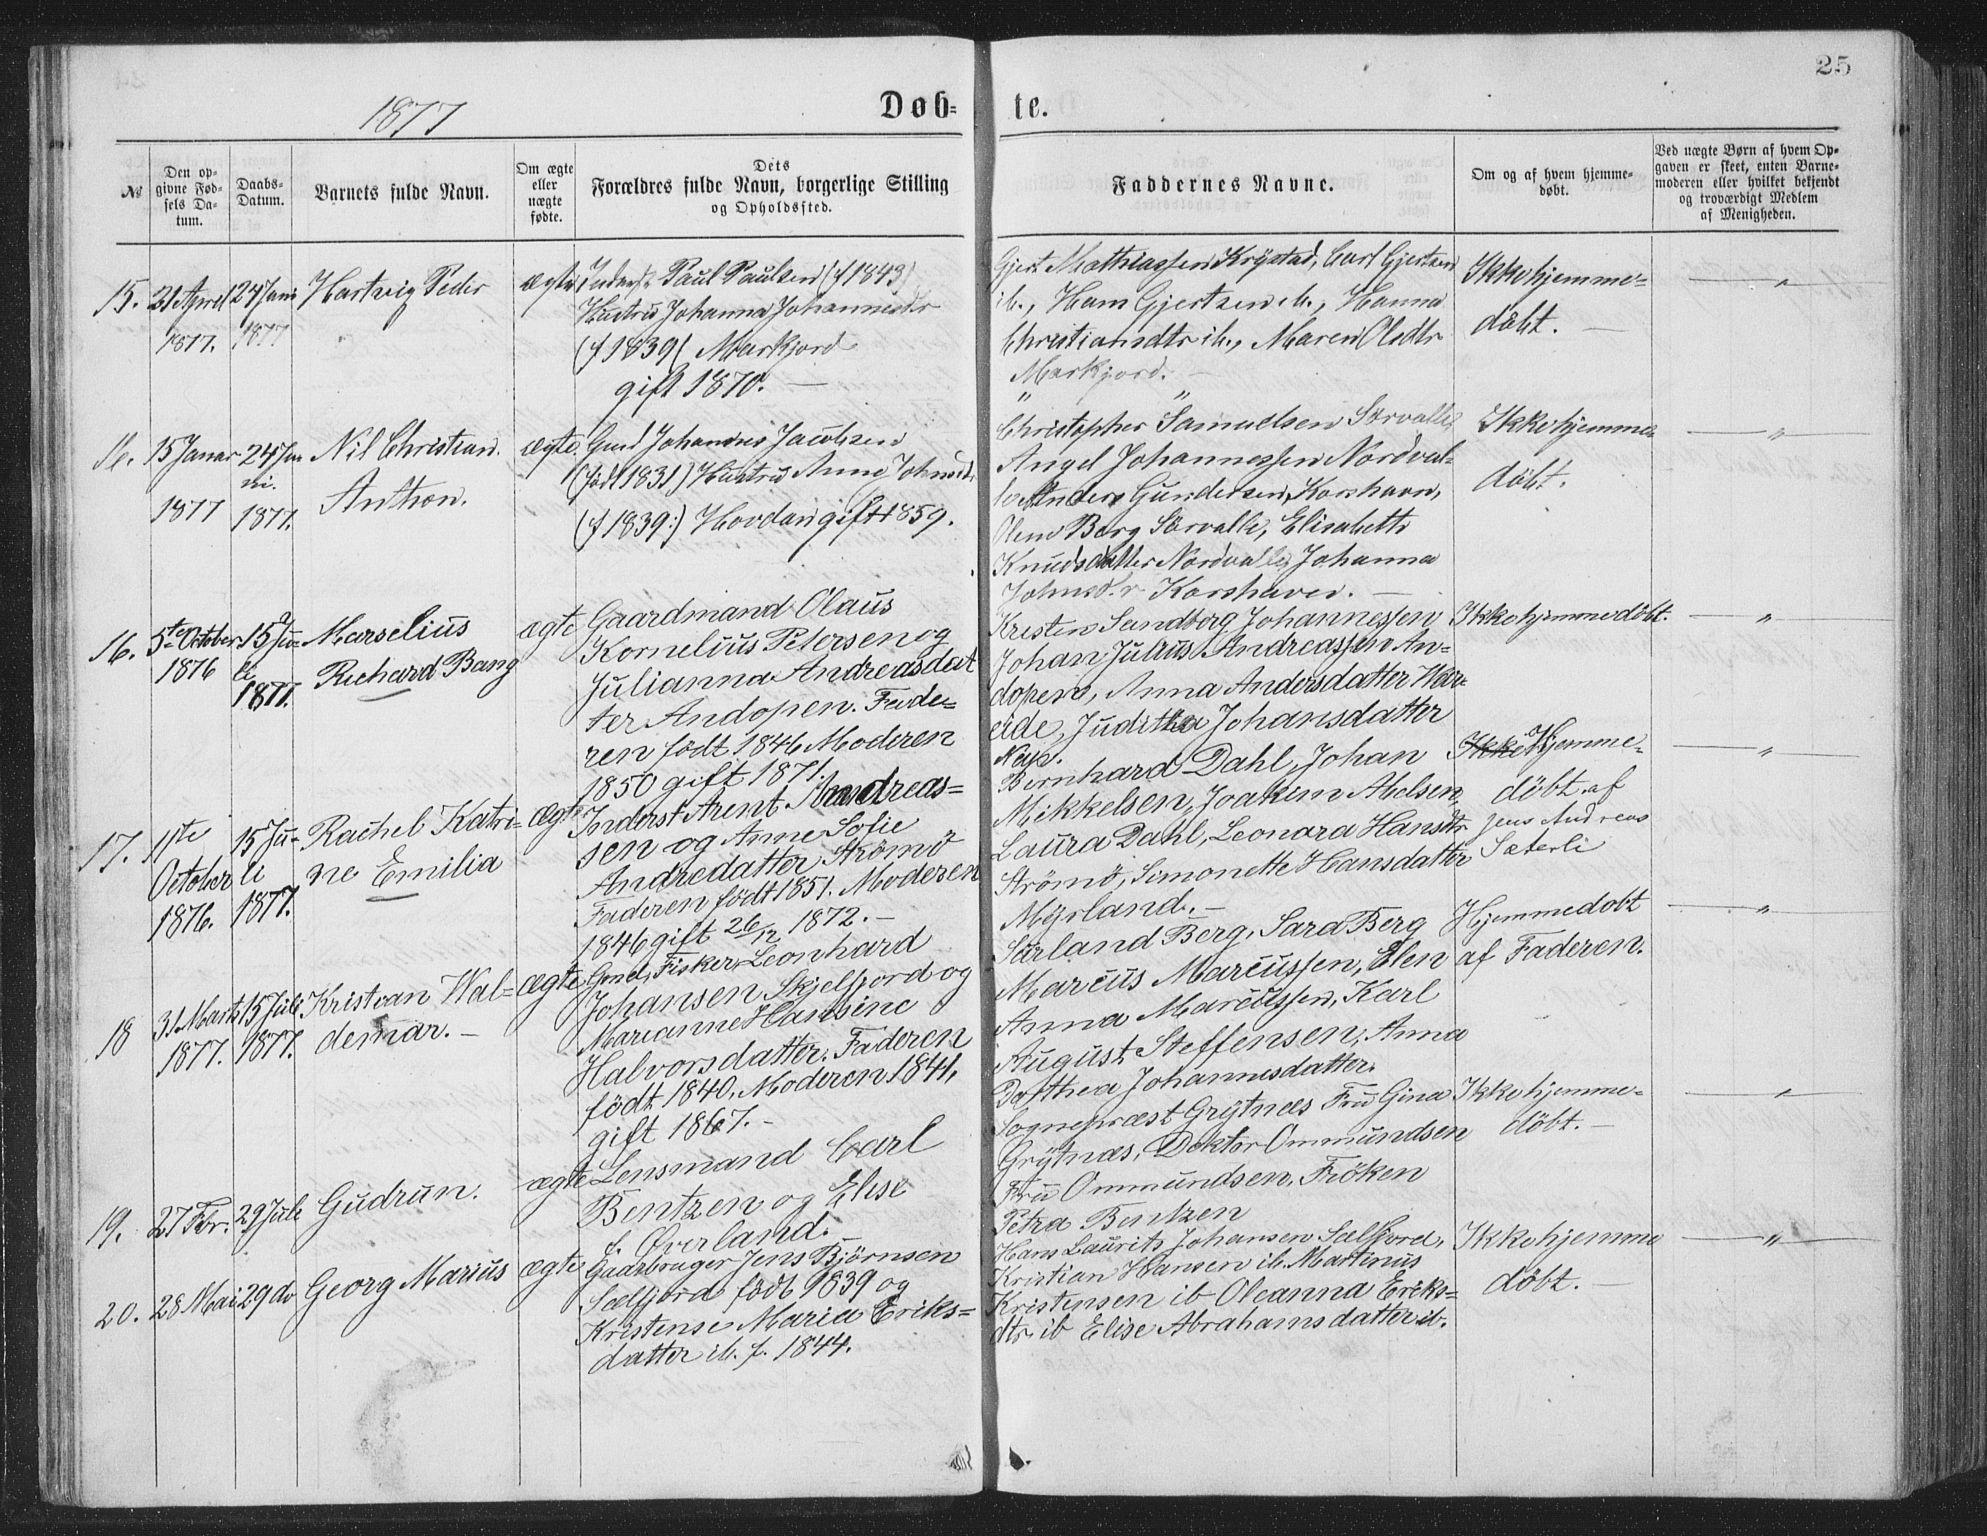 25
1877
Døb-
te.
No
Den op-
givne Fød-
sels Da-
tum.
Daabs-
Datum.
Barnets fulde Navn.
Om ægte
eller
uægte
fødte.
Dets
Forældres fulde Navn, borgerlige Stilling
og Opholdssted.
Faddernes Navne.
Om og af hvem hjemme-
døbt.
Ved uægte Børn af hvem Op-
gaven er skeet, enten Barne-
moderen eller hvilket bekjendt
og troværdigt Medlem
af Menigheden.
15.
21 April
1877.
24 Juni
1877
Hartvig Peder
ægte
Inderst Paul Paulsen (f 1843)
Hustru Johanna Johannesdr
(f 1839( Markjord
gift 1870. —
Gjert Mathiassen Krystad, Carl Gjertsen
ib., Hans Gjertsen ib., Hanna
Christiansdtr ib., Maren Olsdtr
Markjord. —
Ikke hjemme-
döbt. —
— " —
16.
15 Januar
1877
24 Ju
ni.
1877.
Nil Christian
Anthon.
ægte
Gmd Johannes Jacobsen
(född 1831) Hustru Anne Johnsdt
(f 1839:) Hovdan gift 1859.
Christopher Samuelsen Sörvalle,
Angel Johannessen Nordval-
le Anders Gundersen, Korshavn,
Berg Sörvalle, Elisabeth
Knudsdatter Nordvalle, Johanna
Johnsd.r Korshavn. —
Ikke hjemme
döbt.
— " —
16.
5te October
1876
15 Ju-
li
1877.
Marselius
Richard Bang
ægte
Gaardmand Olaus
Kornelius Petersen og
Julianna Andreasdat
ter Andopen. Fade-
ren födt 1846 Moderen
1850 gift 1871.
Kristen Sandberg Johannessen
Johan Julius Andreassen An-
dopen, Anna Andersdatter Har-
eide, Juditha Johansdatter
Nap.
Ikke hjemmedöbt.
— " —
17.
11te
October
1876.
15 Ju-
li
1877.
Rachel Katri-
ne Emilia
ægte
Inderst Arent Andreas-
sen og Anne Sofie
Andredatter Strömö
Faderen födt 1851. Moderen
1846 gift 26/12 1872. —
Bernhard Dahl, Johan
Mikkelsen, Joakim Abelsen,
Laura Dahl, Leonara Hansdtr
Strömö, Simonette Hansdatter
Myrland. —
Ikke Hjemme-
döbt af
Jens Andreas
Sæterli
— " —
18
31 Marts
1877.
15 Juli
1877.
Kristian Wal-
demar. —
ægte
Gmd, Fisker Leonhard
Johansen Skjelfjord og
Marianne Hansine
Halvorsdatter. Faderen
födt 1840, Moderen 1841,
gift 1867. —
Sürland Berg, Sara Berg
Marcus Marcussen, Elen
Anna Marcussen, Karl
August Steffensen, Anna
Dorthea Johannesdatter.
Hjemmedobt
af Faderen.
— " —
19.
27 Fbr.
29 Juli
Gudrun.
ægte
Lensmand Carl
Bentzen og Elise
f. Överland. —
Sogneprest Grÿtnæs Fru Gina
Grÿtnæs, Doktor Ommundsen
Fru Ommundsen, Fröken
Petra Bentzen
Ikke hjemme-
döbt. —
— " —
20.
28 Mai
29 do
Georg Marius
ægte
Gaardbruger Jens Björnsen
Selfjord födt 1839 og
Kristense Maria Eriks-
datter ib. f. 1844.
Hans Laurits Johansen Selfjord,
Kristian Hansen ib. Martinus
Kristensen ib Oleanna Eriks-
dtr ib Elise Abrahamsdatter ib.
Ikke hjemme
döbt. —
— " —